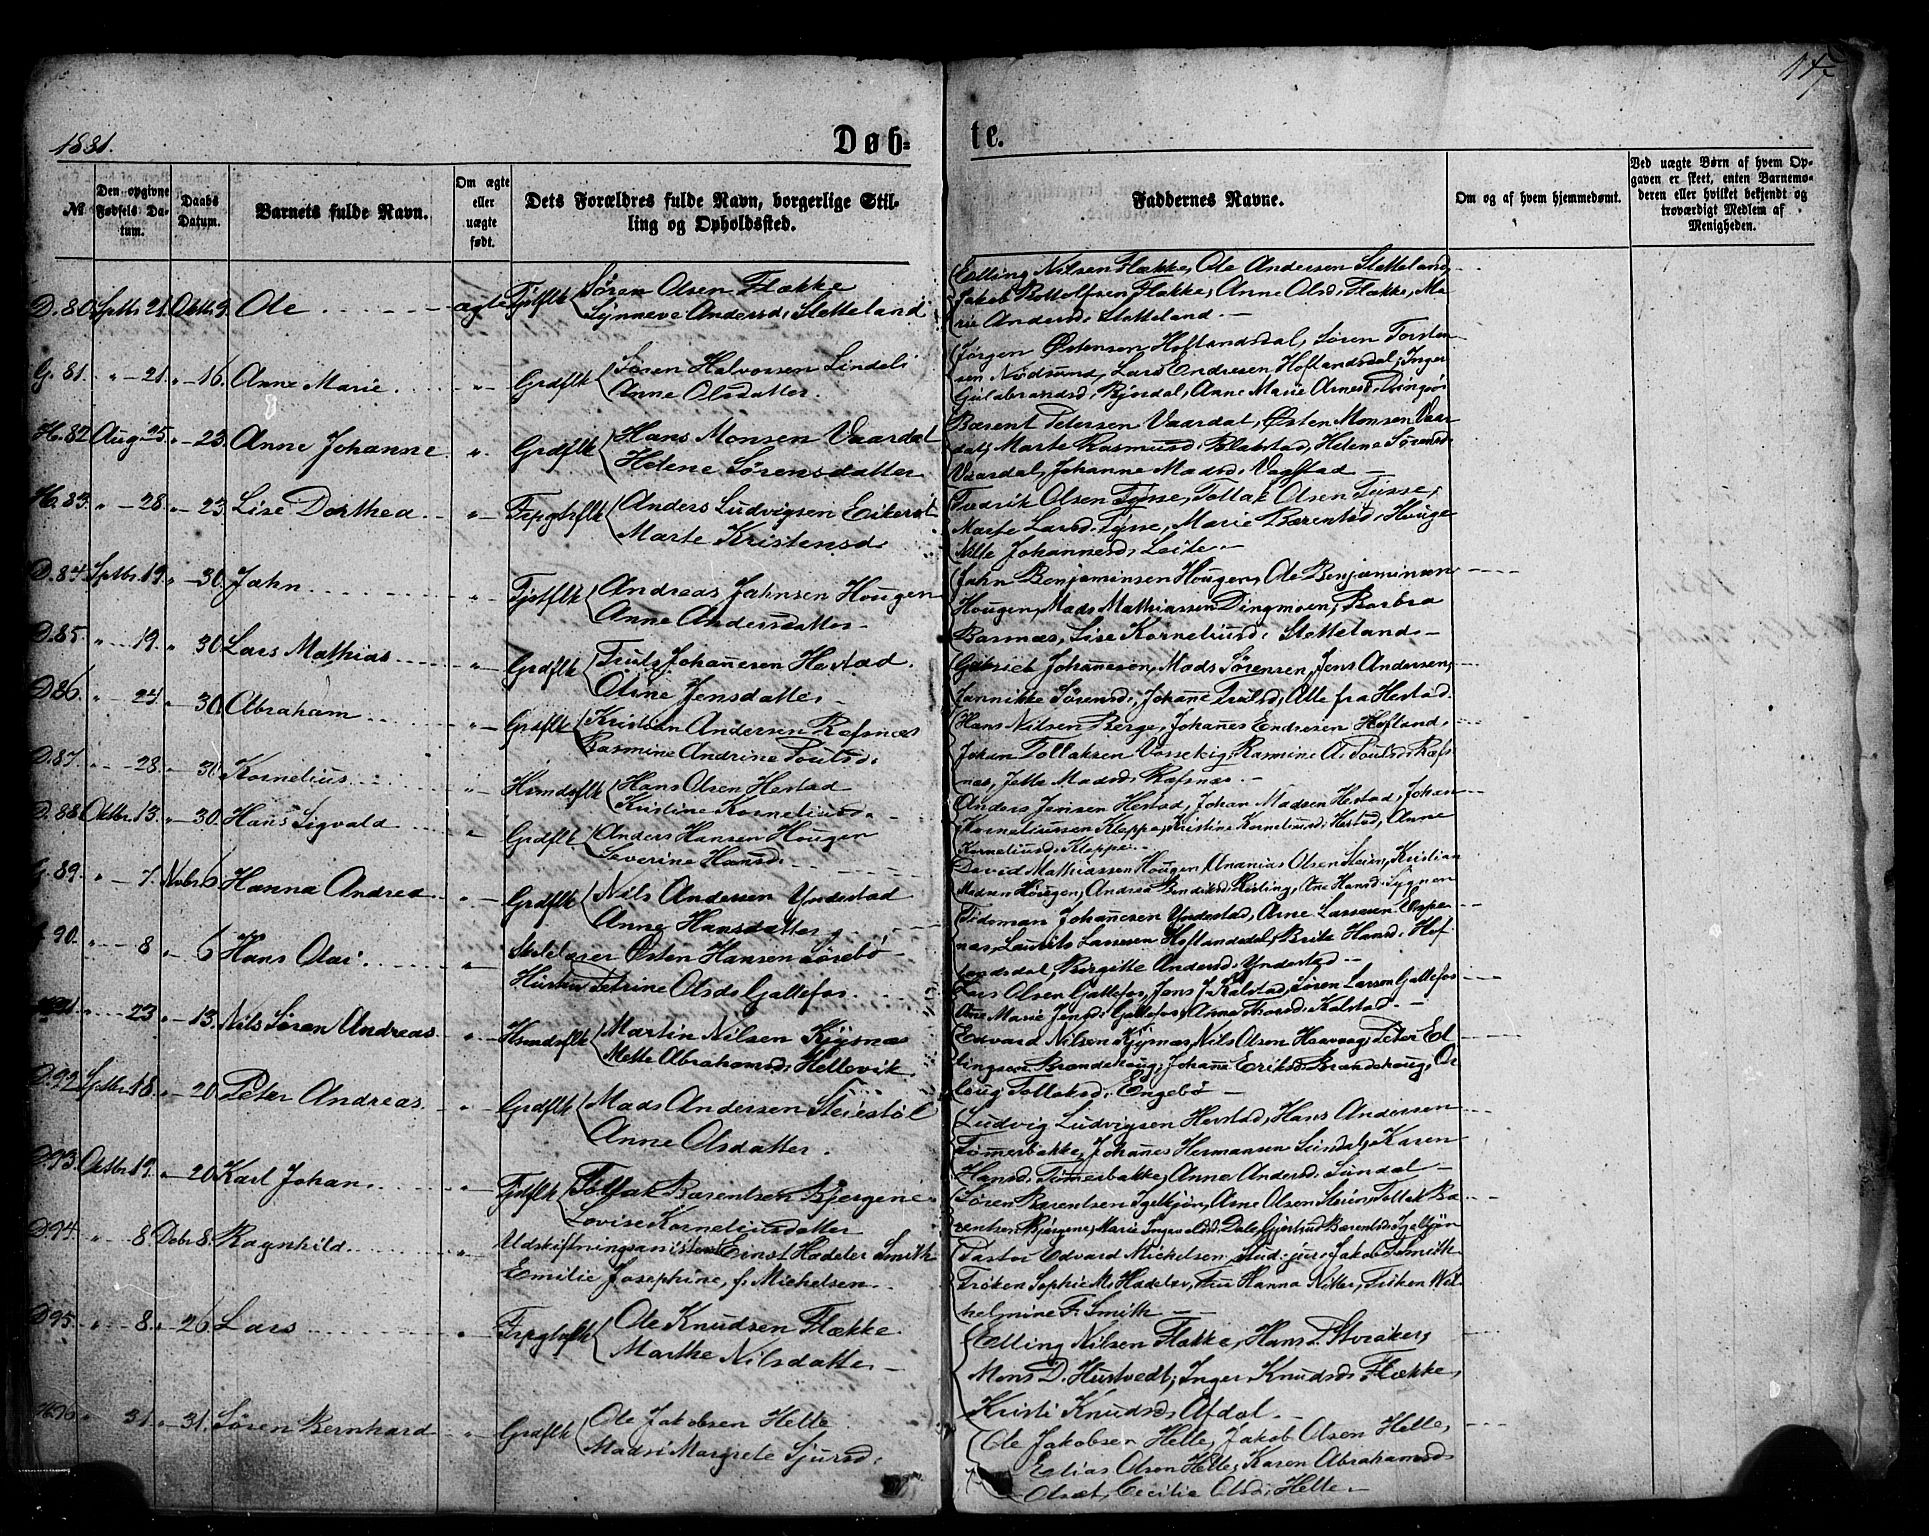 1881.
Døb=
te.
147
№
Den opgivne Fødsels Da-tum.
Daabs Datum.
Barnets fulde Navn.
Om ægte eller uægte født.
Dets Forældres fulde Navn, borgerlige Stil-
ling og Opholdssted.
Faddernes Navne.
Om og af hvem hjemmedøbt.
Ved uægte Børn af hvem Op-
gaven er skeet, enten Barnemo-
deren eller hvilket bekjendt og
troværdigt Medlem af
Menigheden.
D. 80. Sptbr 21. Oktbr 9. Ole ægte Tjstflk Søren Olsen Flække
Synneve Andersd. Stetteland
Elling Nilsen Flække, Ole Andersen Stetteland,
Jakob Bottolfsen Flække, Anne Olsd. Flække, Ma-
rie Andersd. Stetteland.
G. 81. " 21. " 16. Anne Marie " Grdflk Søren Halvorsen Lindeli
Anne Olsdatter.
Jørgen Østensen Hoflandsdal, Søren Torsten-
sen Nødsund, Lars Endresen Hoflandsdal, Inger
Gulabrandsd. Bjordal, Anne Marie Arnesd.
H. 82 Aug 25. " 23. Anne Johanne " Grdflk Hans Monsen Vaardal
Helene Sørensdatter
Bærent Petersen Vaardal, Østen Monsen Vaar-
dal, Marte Rasmusd. Blakstad, Helene Sørensd.
Vaardal, Johanne Madsd. Vagstad
H. 83. " 28. " 23. Lise Dorthea " Frpgtrflk Anders Ludvigsen Eikerol
Marte Kristensd.
Fredrik Olsen Tysse, Tollak Olsen Tysse,
Marte Larsd. Tysse, Marie Bærentsd. Houge
Nille Johannesd. Leite.
D. 84. Sptbr. 19. " 30. Jahn " Tjstflk Andreas Jahnsen Hougen
Anne Andersdatter
Jahn Benjaminsen Hougen, Ole Benjaminsen
Hougen, Mads Mathiassen Dingmoen, Barbra
Basmæs, Lise Korneliusd. Stetteland
D. 85. " 19. " 30. Lars Mathias " Grdflk Truls Johanesen Hestad.
Oline Jensdatter
Gabriel Johanesen, Mads Sørensen, Jens Andersen,
Jannikke Sørensd., Johane Trulsd., Alle fra Hestad.
D. 86. " 24. " 30. Abraham " Grdflk Kristian Andersen Refsnæs
Rasmine Andrine Poulsd.
Hans Nilsen Berge, Johanes Endresen Hofland,
Johan Tollaksen Vasseleig, Rasmine A. Poulsd. Refs-
næs, Jette Madsd. Refsnæs.
D. 87. " 28. " 30. Kornelius " Hsmdsflk Hans Olsen Hestad
Kristine Korneliusd.
Anders Jensen Hestad, Johan Madsen Hestad, Johan
Korneliussen Kleppe, Kristine Korneliusd. Hestad, Anne
Korneliusd. Kleppe.
D. 88. Oktbr. 13. " 30. Hans Sigvald " Grdflk Anders Hansen Hougen
Severine Hansd.
David Mathiassen Hougen, Ananias Olsen Steien, Kristian
Madsen Hougen, Andrea Bendiksd. Kirling, Ane Hansd. Sygnen
G. 89. " 7. Nvbr 6 Hanna Andrea " Grdflk Nils Andersen Yndestad
Anne Hansdatter
Tideman Johanesen Yndestad, Arne Lassesen Espe-
næs, Laurits Lassesen Hoflandsdal, Brite Hansd. Hof-
landsdal, Birgitte Andersd. Yndestad
G. 90. " 8 " 6 Hans Olai. " Skolelærer Østen Hansen Sørebø
Hustru Petrine Olsd. Gallefos.
Lars Olsen Gallefos, Jens J. Kalstad, Søren Larsen Gallefos
Ane Marie Jensd. Gallefos, Anna Thoresd. Kalstad.
91. " 23 " 13. Nils Søren Andreas " Hsmdsflk Martin Nilsen Kjysnæs
Mette Abrahamsd. Hellevik.
Edvard Nilsen Kjysnæs, Nils Olsen Haavaag, Peter El-
lingsen Brandehoug, Johane Eriksd. Brandehoug, Or-
loug Tollaksd. Engebø
D. 92 Sptbr 18. " 20. Peter Andreas " Grdflk Mads Andersen Steiestøl
Anne Olsdatter.
Ludvig Ludvigsen Hovstad, Hans Andersen
Tømmerbakke, Johanes Hermansen Sundal, Karen
Hansd. Tømerbakke, Anne Andersd. Sundal
D. 93. Oktbr. 19. " 20 Karl Johan " Tjstflk Tollak Bærentsen Bjergene
Lovise Korneliusdatter
Søren Bærentsen Igelkjøn, Arne Olsen Steien, Tollak Bæ-
rentsen Bjergene, Marie Ingersd. Dale, Gjertrud Bærentsd. Igelkjøn
D. 94. " 8. Debr 8. Ragnhild " Udskiftningsassistent Ernst Hadeler Smith
Emilie Josephine, f. Michelsen.
Pastor Edvard Michelsen, stud. jur. Jakob Smith
Frøken Sophie M. Hadeler, Fru Hanna Nitter, Frøken Vil-
helmine F. Smith
D. 95. " 8. " 26. Lars " Frpgtrflk Ole Knudsen Flække.
Marthe Nilsdatter
Elling Nilsen Flække, Hans P. Stvraker,
Mons D. Hustvedt, Inger Knudsd. Flække,
Kristi Knudsd. Afdal.
H. 96. " 31. " 31. Søren Bernhard " Grdflk Ole Jakobsen Helle.
Madsi Margrete Sjursd.
Ole Jakobsen Helle, Jakob Olsen Helle,
Elias Olsen Helle, Karen Abrahamsd.
Olset, Cecilia Olsd. Helle.